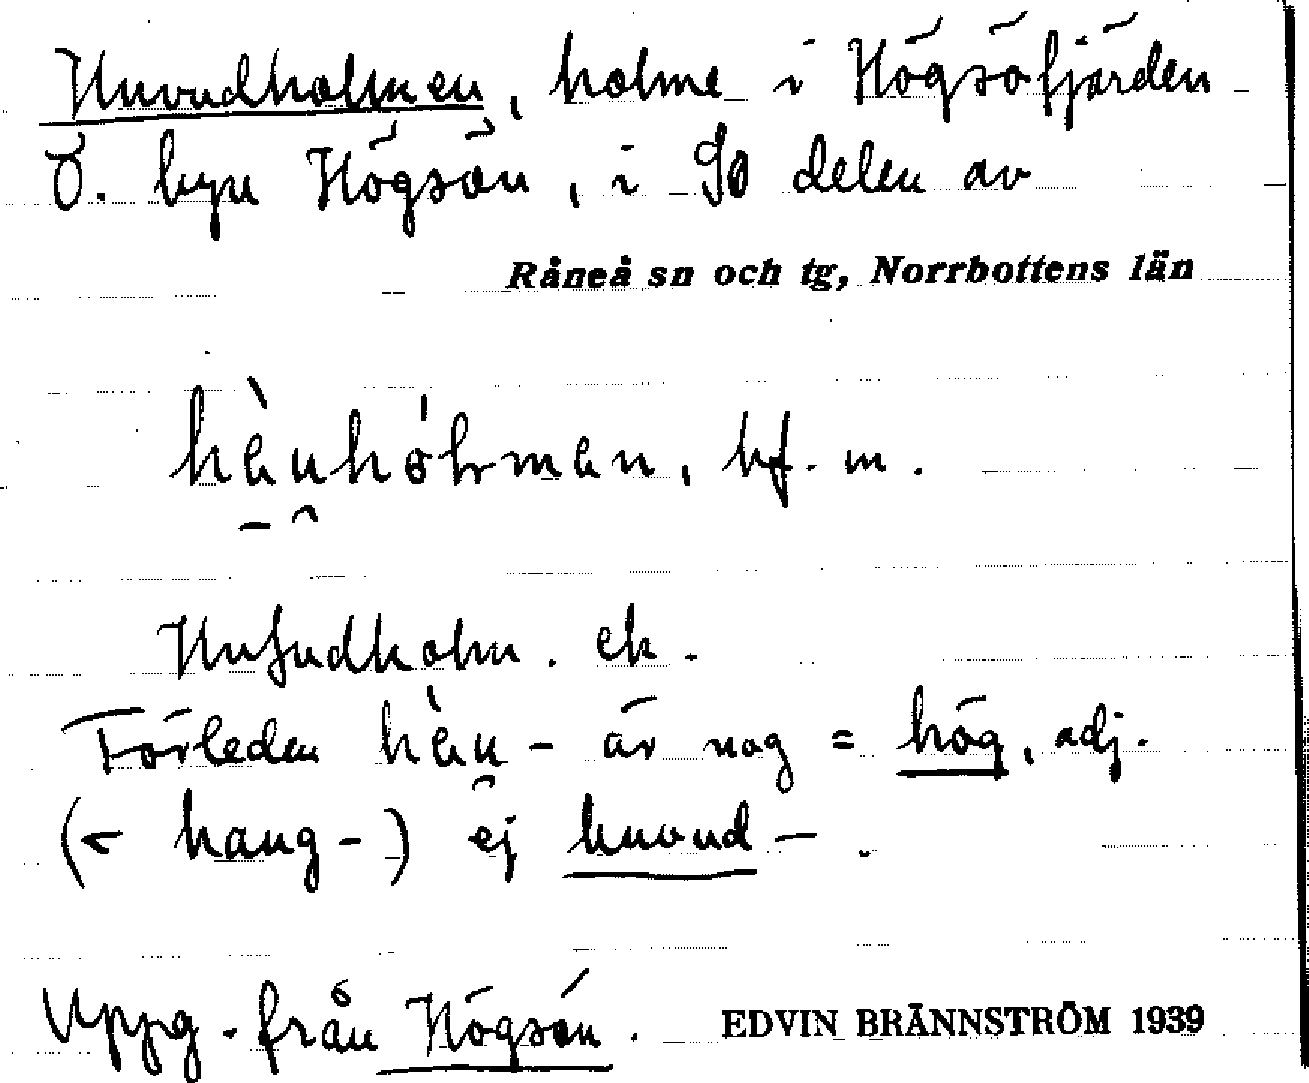 Huvudholmen, holme i Högsöfjärden
Ö. byn Högsön, i SO delen av
Råneå sn och tg, Norrbottens län
hè̱u̯hóhman, bf. m.
Hufudholm. ek.
Förleden hèu̯- är nog = hög, adj.
(< haug-) ej huvud-.
Uppg. från Högsön. EDVIN BRÄNNSTRÖM 1939